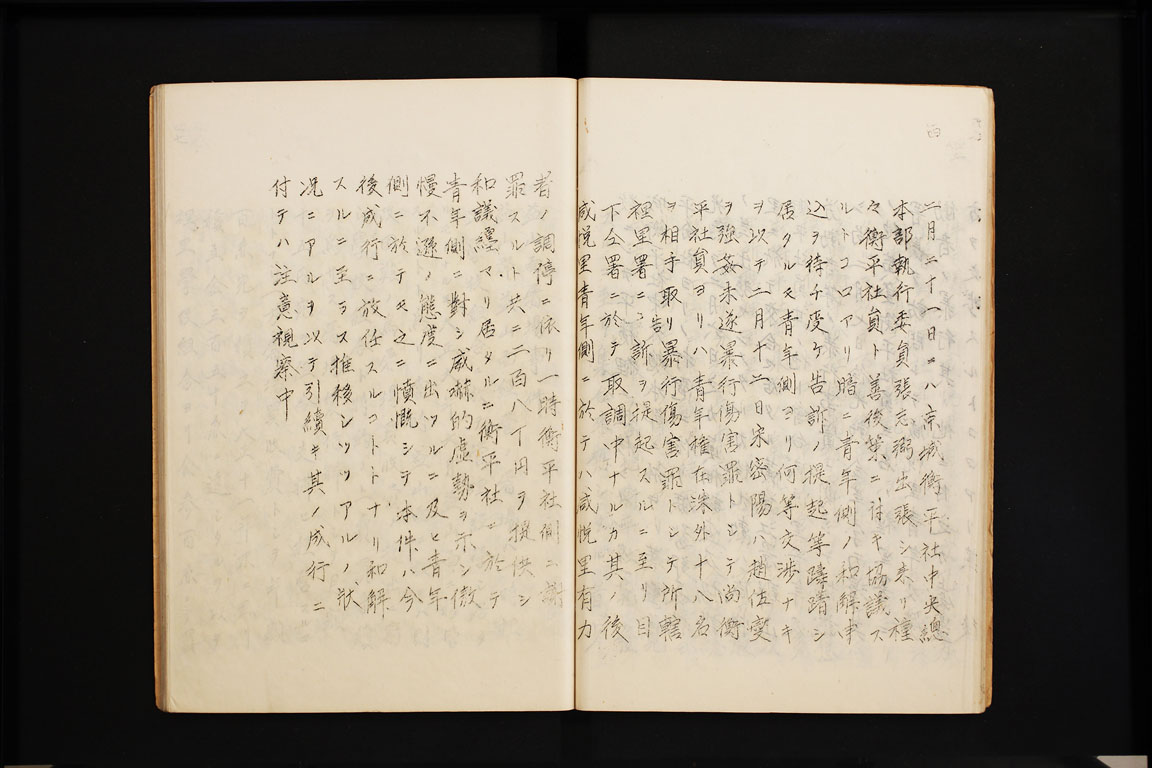 二月二十一日ニハ京城衡平社中央總
本部執行委員張志弼出張シ来リ種
々衡平社員ト善後策ニ付キ協議ス
ルトコロアリ暗ニ青年側ノ和解申
込ヲ待チ受ケ告訴ノ提起等躊躇シ
居タルモ青年側ヨリ何等交渉ナキ
ヲ以テ二月十二日宋密陽ハ趙佐
ヲ強姦未遂暴行傷害罪トシテ尚衡
平社員ヨリハ青年権在洙外十八名
ヲ相手取リ暴行傷害罪トシテ所轄
裡里署ニ告訴ヲ提起スルニ至リ目
下仝署ニ於テ取調中ナルカ其ノ後
咸悦里青年側ニ於テハ咸悦里有力
者ノ調停ニ依リ一時衡平社側ニ謝
罪スルト共ニ二百八十円ヲ提供シ
和議纏マリ居タルニ衡平社ニ於テ
青年側ニ對シ威嚇的虚勢ヲ示シ傲
慢不遜ノ態度ニ出ツルニ及ヒ青年
側ニ於テモ之ニ憤慨シテ本件ハ今
後成行ニ放任スルコトトナリ和解
スルニ至ラス推移シツツアルノ状
況ニアルヲ以テ引續キ其ノ成行ニ
付テハ注意視察中